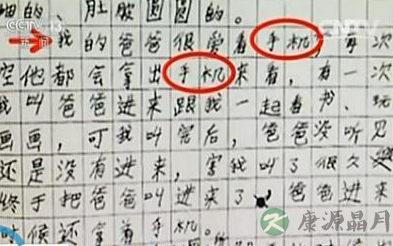 的、肚 圆圆的。
CCTV 13
新闻
我的爸爸很爱看手机,每次
空他都会拿出手机来看,有一次
我叫爸爸进来跟我一起看书、玩
画画,可我叫完后,爸爸没听见
还是没有进来,害我叫了很久
终于把爸爸叫进来了 爸爸进来
时候还拿着手机。
康源晶月